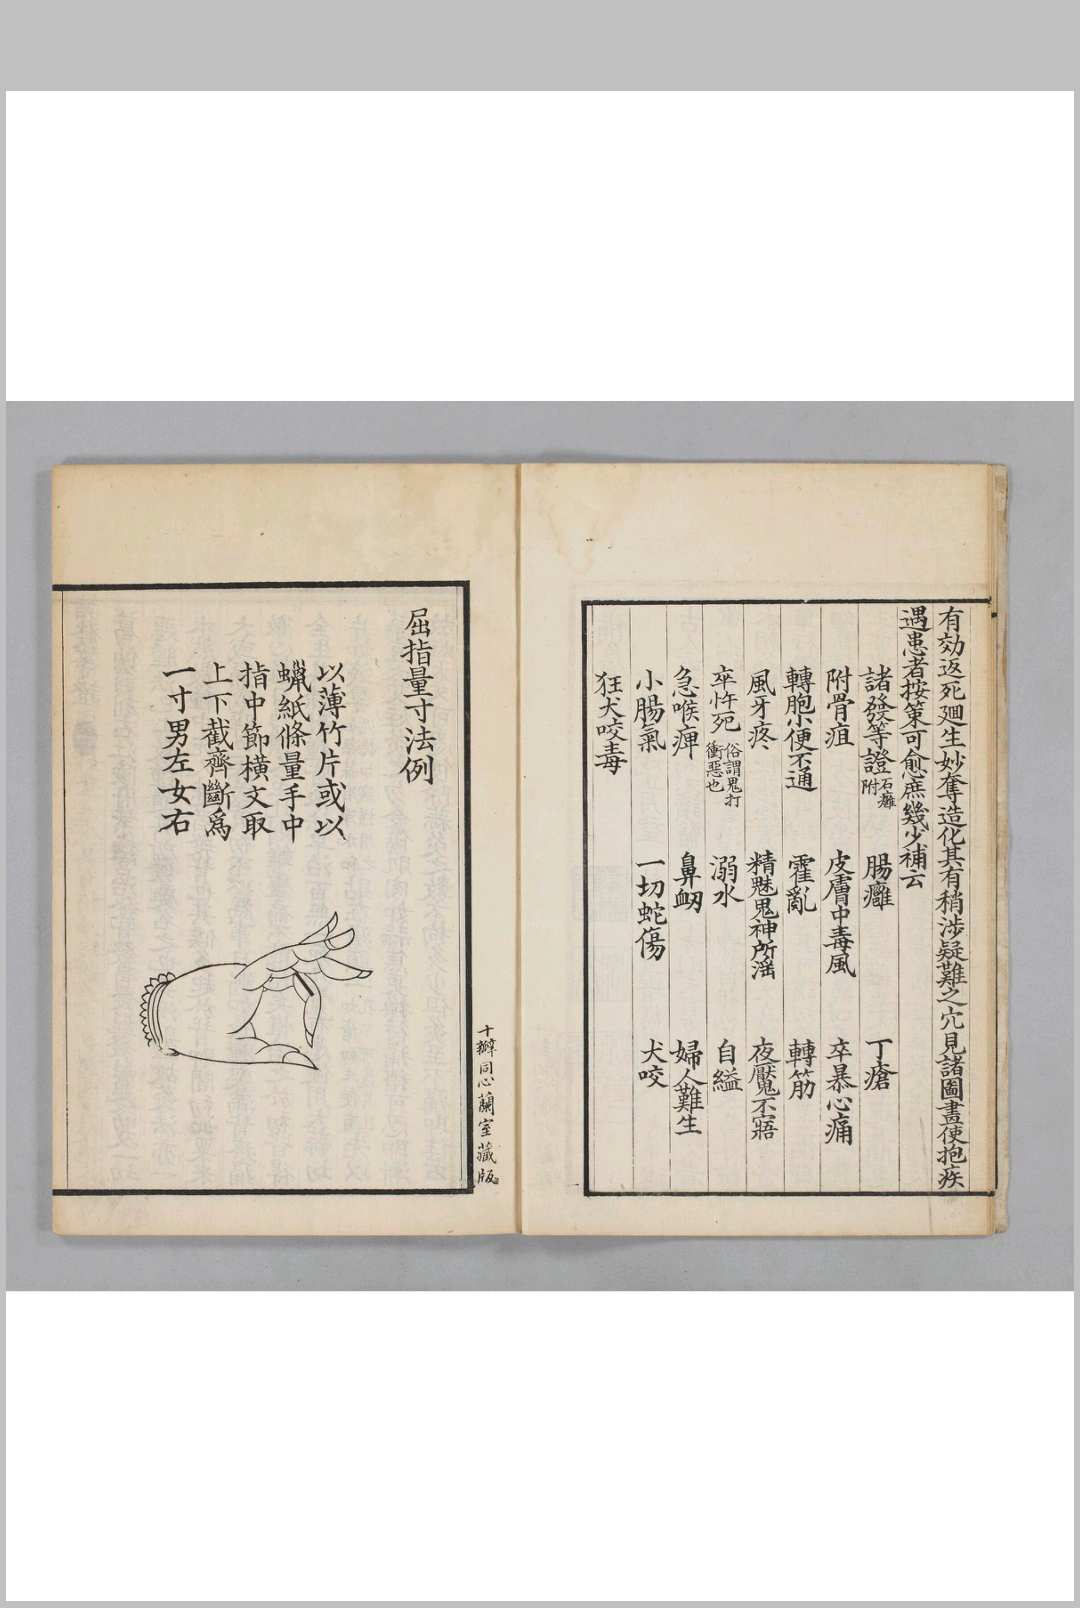 有効返死廻生妙奪造化其有稍涉疑難之穴見諸圖畫使抱疾
遇患者按策可愈庶幾少補云
諸發等證 石癰附 腸癰 丁瘡
附骨疽 皮膚中毒風 卒暴心痛
轉胞小便不通 霍亂 轉筋
風牙疼 精魅鬼神所淫 夜魘不寤
卒忤死 俗謂鬼打衝惡也 溺水 自縊
急喉痺 鼻衂 婦人難生
小腸氣 一切蛇傷 犬咬
狂犬咬毒
十瓣同心蘭室藏版
屈指量寸法例
以薄竹片或以
蠟紙條量手中
指中節橫文取
上下截齊斷爲
一寸男左女右